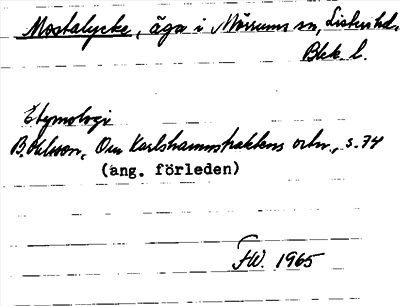 Mostalycke, äga i Mörrums sn, Listers hd.
Blek. l.
Etymologi
B. Ohlsson, Om Karlshamnstraktens ortn., s. 74
(ang. förleden)
FW. 1965